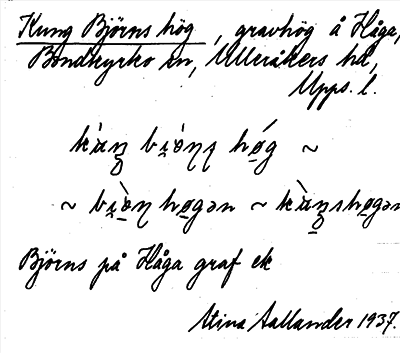 Kung Björns hög, gravhög å Håga,
Bondkyrko sn, Ulleråkers hd,
Upps. l.
hǿg ~
~ høgən ~
Björns på Håga graf ek
Stina Sallander 1937.